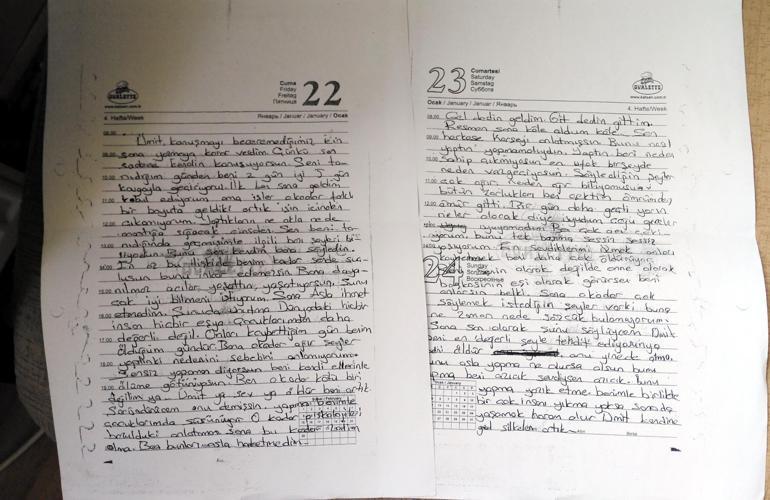 Cuma
Friday
Freitag
Пятница
22
GURLETTE
4. Hafta/Week
Январь / Januar / January / Ocak
08.00
Ümit, konuşmayı beceremediğimiz için
sana yazmaya karar verdim. Çünkü sen
sadece kendin konuşuyorsun. Seni ta-
nıdığım günden beri 2 gün iyi 5 gün
kavgayla geçiriyoruz. İlk ben sana geldim
kabul ediyorum ama işler okadar farklı
bir boyuta geldiki artık işin içinden
çıkamıyorum. Yaptıkların ne akla nede
mantığa sığacak cinsden. Sen beni ta-
nıdığında geçmişimle ilgili her şeyleri bi-
liyodun. Bunu sen kendin bana söyledin.
En az bu ilişkide benim kadar sende suç-
lusun bunu inkar edemezsin. Bana daya-
nılmaz acılar yaşattın, yaşatıyorsun. Şunu
çok iyi bilmeni istiyorum. Sana Asla ihanet
etmedim. Şunuda unutma Dünyadaki hiçbir
insan hiçbir eşya çocuklarımdan daha
değerli değil. Onları kaybettiğim gün benim
öldüğüm gündür. Bana okadar ağır şeyler
yaptınki nedenini sebebini anlamıyorum.
Sensiz yapamam diyorsun beni kendi ellerinle
ölüme götürüyorsun. Ben okadar kötü biri
değilim ya. Ümit ya sev ya öldür beni artık
Süründürecem onu demişsin. yapma benimle
çocuklarımda sürünüyor. O kadar psikolojileri
bozulduki anlatmam sana bu kadar zalim
olma. Ben bunları asla haketmedim.
23
Cumartesi
Saturday
Samstag
Суббота
GURLETTE
Ocak / January / Januar / Январь
4. Hafta/Week
Gel dedin geldim. Git dedin gittim.
Resmen sana köle oldum köle. Sen
herkese herşeyi anlatmışsın. Bunu nasıl
yaptın yapmamalıydın. Yaptın beri neden
sahip çıkmıyosun en ufak birşeyde
neden vazgeçiyosun. Söylediğin şeyler
çok ağır neden ağır biliyomusun.
bütün zorlukları ben açtım ömrümden
ömür gitti. Bir gün daha geçti yarın
neler olacak diye uyudum çoğu geceler
uyuyamadım. Ben çok acı çeki-
yorum bunu tek başıma sessiz sessiz
yaşıyorum. En sevdiklerimi
kaybetmek beni daha çok öldürüyor.
24
Sunday
Sonntag
Воскресенье
olarak değilde anne olarak
başkasının eşi olarak görürsen beni
anlarsın belki. Sana okadar çok
söylemek istediğim şeyler varki bunu
ne zaman nede sözcük bulamıyorum.
Sana son olarak şunu söylüyeyim Ümit
beni en değerli şeyle tehdit ediyosunya
beni öldür onu yinede etme.
bunu asla yapma ne olursa olsun bunu
yapma beni azıcık sevdiysen azıcık. bunu
yapma yazık etme. benimle birlikte
bir çok insanı yıkma yoksa sanada
yaşamak haram olur Ümit kendine
gel silkelen artık.